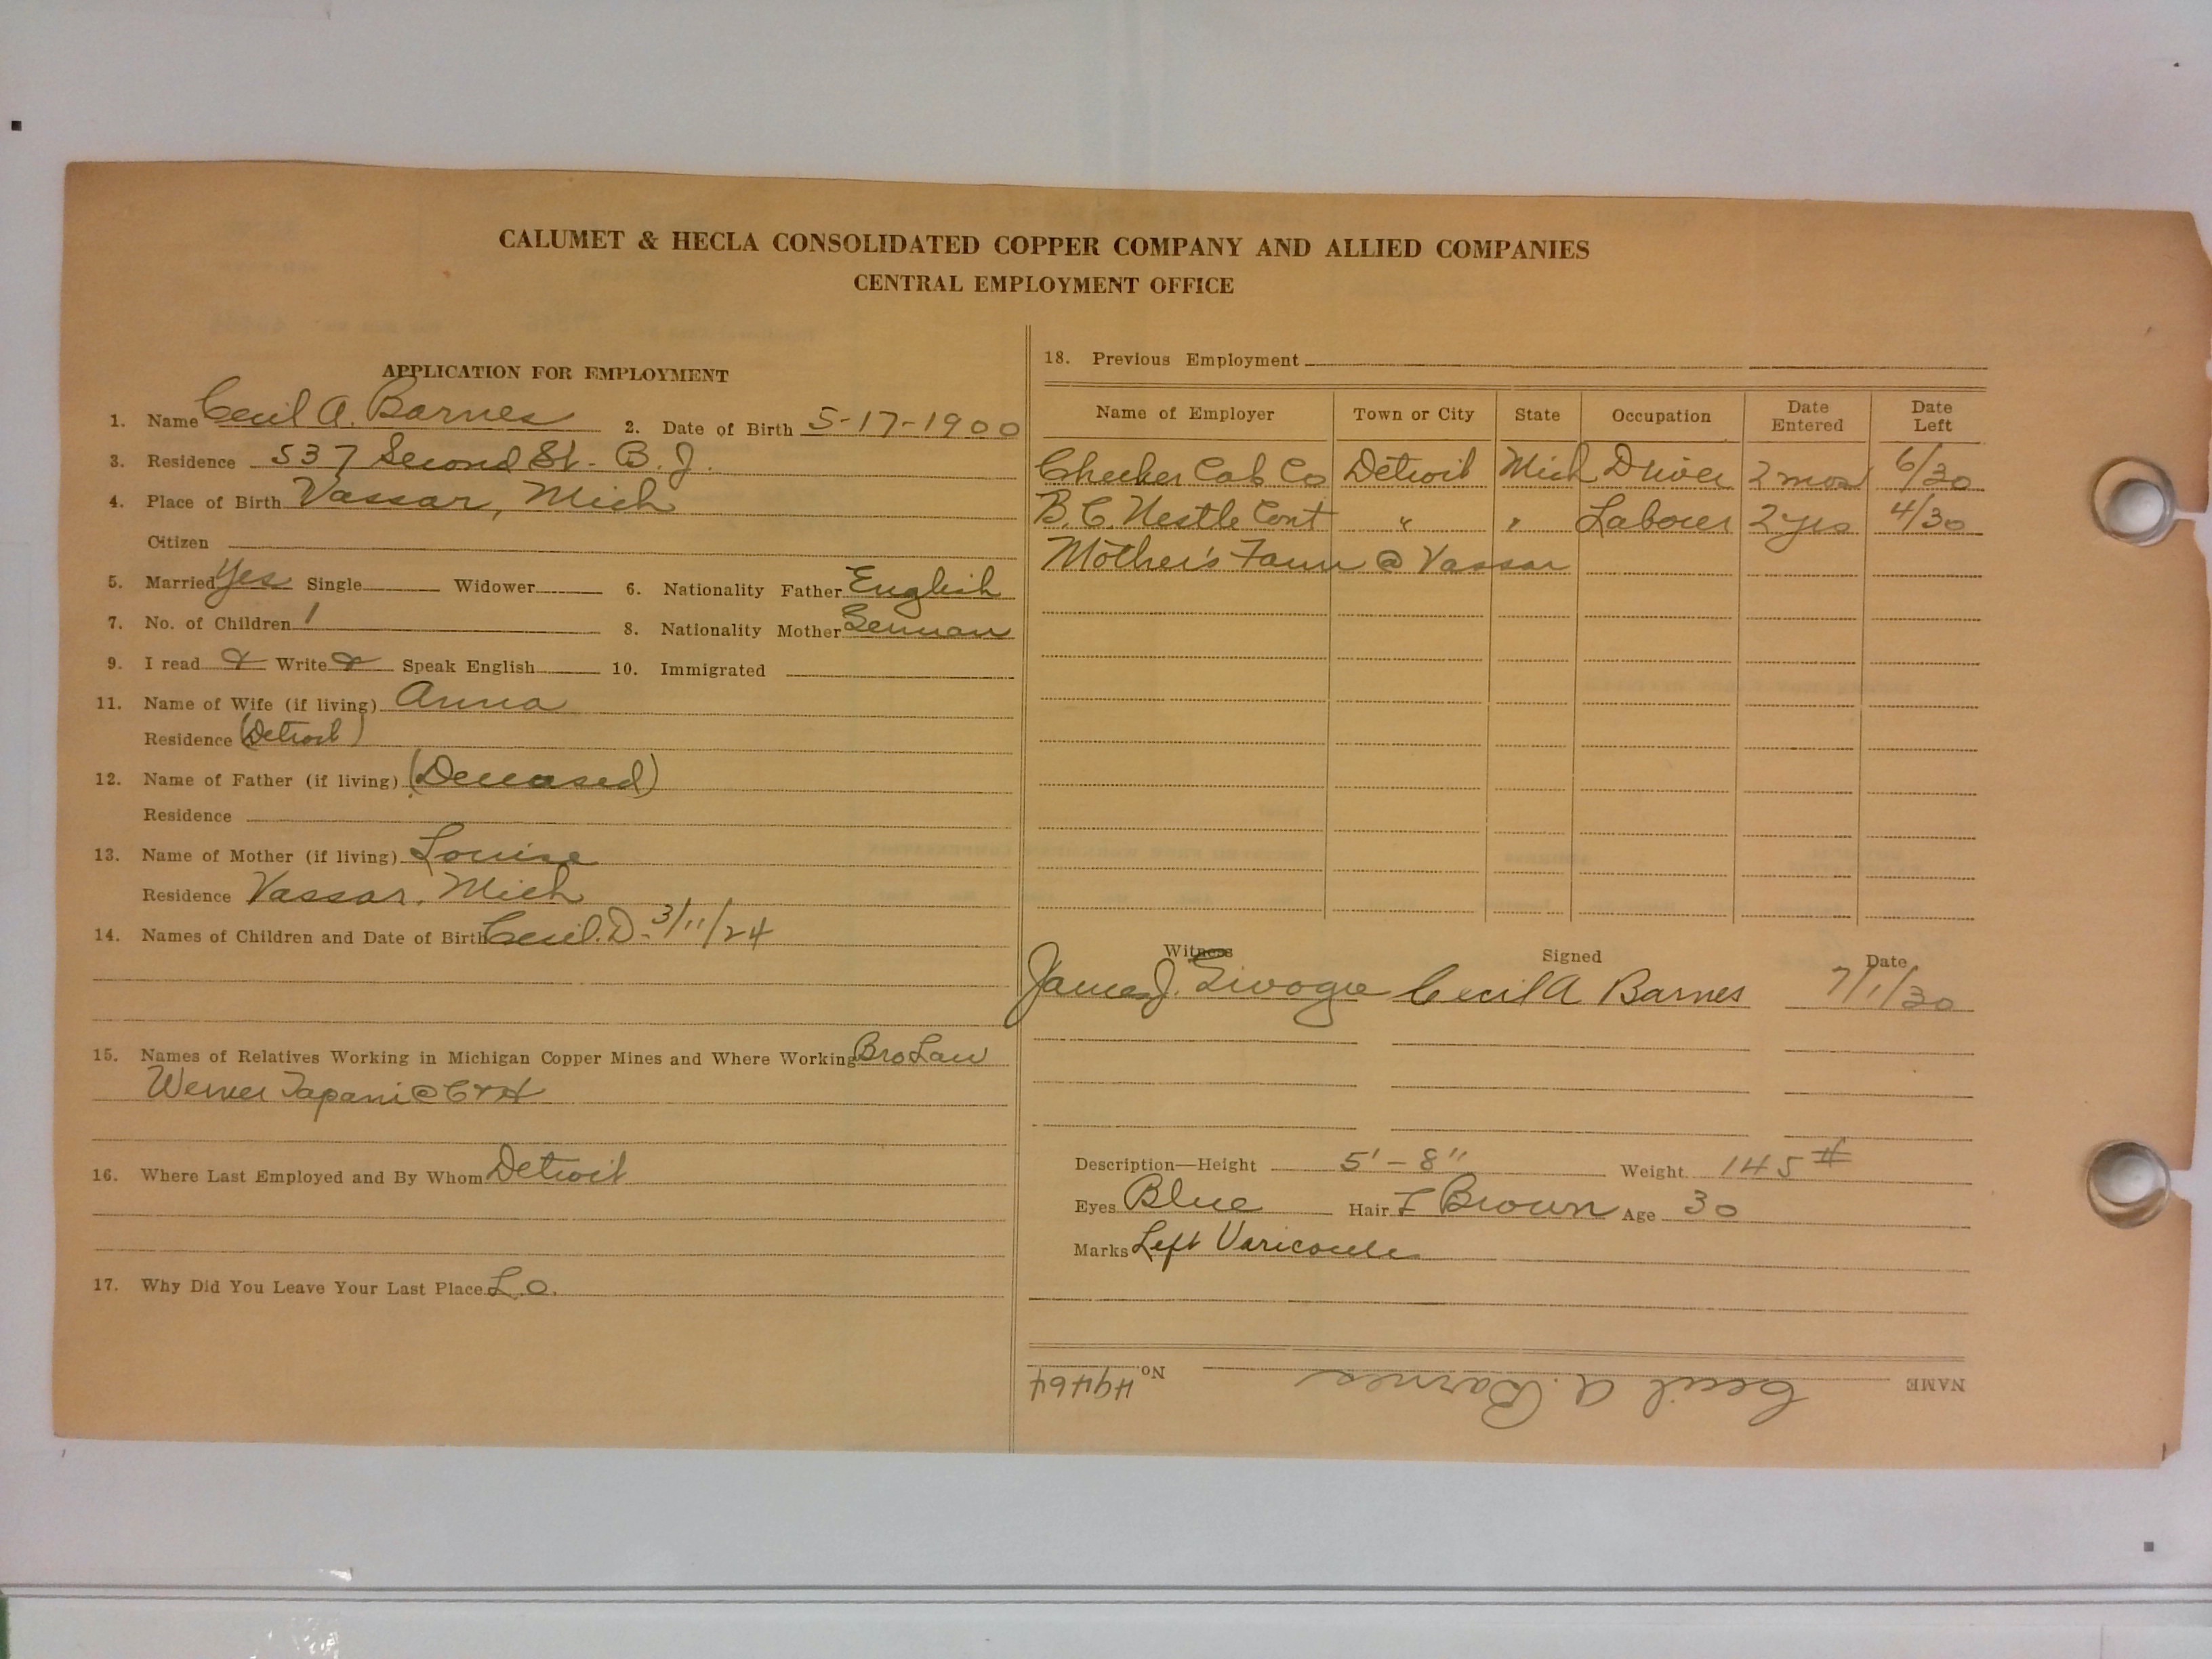 CALUMET & HECLA CONSOLIDATED COPPER COMPANY AND ALLIED COMPANIES
CENTRAL EMPLOYMENT OFFICE
APPLICATION FOR EMPLOYMENT
1. Name Cecil A. Barnes 2. Date of Birth 5-17-1900
3. Residence 537 Second St. B.J.
4. Place of Birth Vassar, Mich
Citizen
5. Married Yes Single Widower 6. Nationality Father English
7. No. of Children 1 8. Nationality Mother German
9. I read & Write & Speak English 10. Immigrated
11. Name of Wife (if living) Anna
Residence (Detroit)
12. Name of Father (if living) (Deceased)
Residence
13. Name of Mother (if living) Louise
Residence Vassar, Mich
14. Names of Children and Date of Birth Cecil.D- 3/11/24
15. Names of Relatives Working in Michigan Copper Mines and Where Working Bro Law
Werner Tapani @ C&H
16. Where Last Employed and By Whom Detroit
17. Why Did You Leave Your Last Place L.O.
18. Previous Employment
Name of Employer Town or City State Occupation Date Entered Date Left
Checker Cab Co Detroit Mich Driver 2 mos 6/30
B.C. Nestle Cont " " Laborer 2 yrs 4/30
Mother's Farm @ Vassar
Witness Signed Date
James J. Cecil A Barnes 7/1/30
Description—Height 5'-8" Weight 145#
Eyes Blue Hair L Brown Age 30
Marks Left Varicocele
NAME Cecil A. Barnes No. 49464